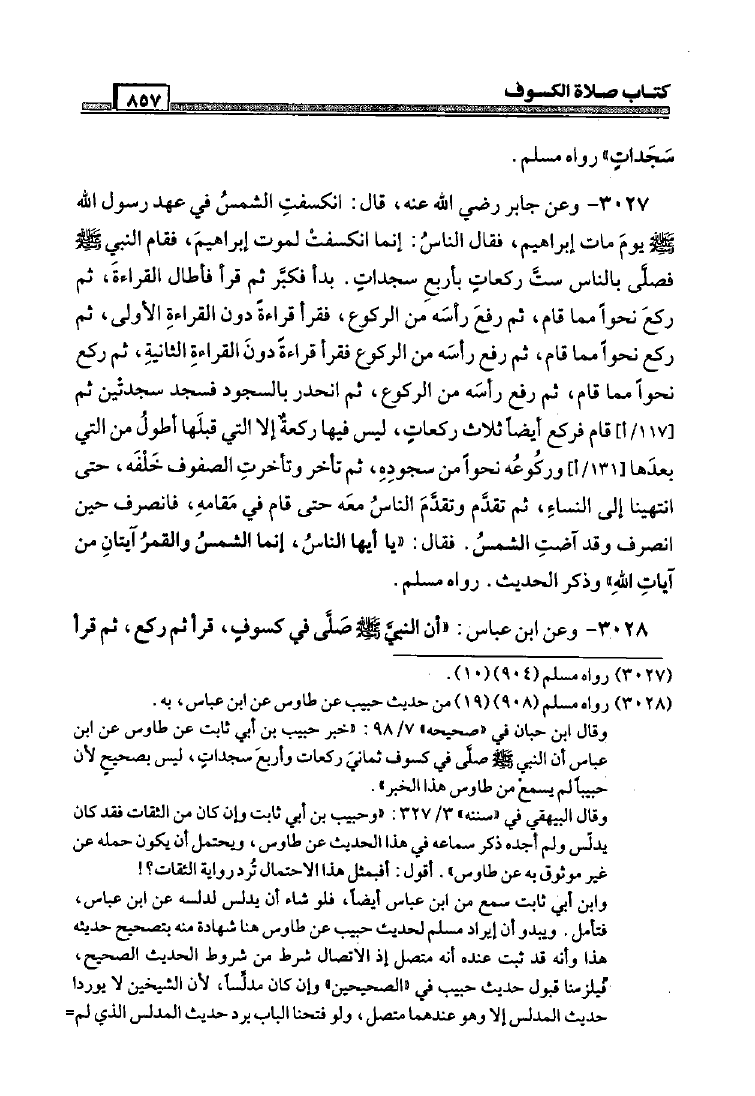 كتاب صلاة الكسوف
٨٥٧
سَجَداتٍ» رواه مسلم.
٣٠٢٧- وعن جابر رضي الله عنه، قال: انكسفتِ الشمسُ في عهد رسول الله
ﷺ يومَ مات إبراهيم، فقال الناسُ: إنما انكسفتْ لموت إبراهيمَ، فقام النبي ﷺ
فصلَّى بالناس ستَّ ركعاتٍ بأربعِ سجداتٍ. بدأ فكبَّر ثم قرأ فأطال القراءةَ، ثم
ركعَ نحواً مما قام، ثم رفعَ رأسَه من الركوع، فقرأ قراءةً دون القراءةِ الأولى، ثم
ركع نحواً مما قام، ثم رفع رأسَه من الركوع فقرأ قراءةً دونَ القراءةِ الثانيةِ، ثم ركع
نحواً مما قام، ثم رفع رأسَه من الركوع، ثم انحدر بالسجود فسجد سجدتْين ثم
[١١٧/أ] قام فركع أيضاً ثلاث ركعاتٍ، ليس فيها ركعةٌ إلا التي قبلَها أطولُ من التي
بعدَها [١٣١/أ] وركُوعُه نحواً من سجودِهِ، ثم تأخر وتأخرتِ الصفوف خَلْفَه، حتى
انتهينا إلى النساءِ، ثم تقدَّم وتقدَّمَ الناسُ معَه حتى قام في مَقامهِ، فانصرف حين
انصرف وقد آضتِ الشمسُ. فقال: «يا أيها الناسُ، إنما الشمسُ والقمرُ آيتانِ من
آياتِ اللهِ» وذكر الحديث. رواه مسلم.
٣٠٢٨- وعن ابن عباس: «أن النبيَّ ﷺ صَلَّى في كسوفٍ، قرأ ثم ركع، ثم قرأ
(٣٠٢٧) رواه مسلم (٩٠٤)(١٠).
(٣٠٢٨) رواه مسلم (٩٠٨)(١٩) من حديث حبيب عن طاوس عن ابن عباس، به.
وقال ابن حبان في «صحيحه» ٩٨/٧: «خبر حبيب بن أبي ثابت عن طاوس عن ابن
عباس أن النبي ﷺ صلَّى في كسوف ثمانيَ ركعات وأربعَ سجداتٍ، ليس بصحيحٍ لأن
حبيباً لم يسمعْ من طاوس هذا الخبر».
وقال البيهقي في «سننه» ٣٢٧/٣: «وحبيب بن أبي ثابت وإن كان من الثقات فقد كان
يدلّس ولم أجده ذكر سماعه في هذا الحديث عن طاوس، ويحتمل أن يكون حمله عن
غير موثوق به عن طاوس». أقول: أفبمثل هذا الاحتمال تُرد رواية الثقات؟!
وابن أبي ثابت سمع من ابن عباس أيضاً، فلو شاء أن يدلس لدلسه عن ابن عباس،
فتأمل. ويبدو أن إيراد مسلم لحديث حبيب عن طاوس هنا شهادة منه بتصحيح حديثه
هذا وأنه قد ثبت عنده أنه متصل إذ الاتصال شرط من شروط الحديث الصحيح،
فيلزمنا قبول حديث حبيب في «الصحيحين» وإن كان مدلّساً، لأن الشيخين لا يوردا
حديث المدلس إلا وهو عندهما متصل، ولو فتحنا الباب برد حديث المدلس الذي لم=